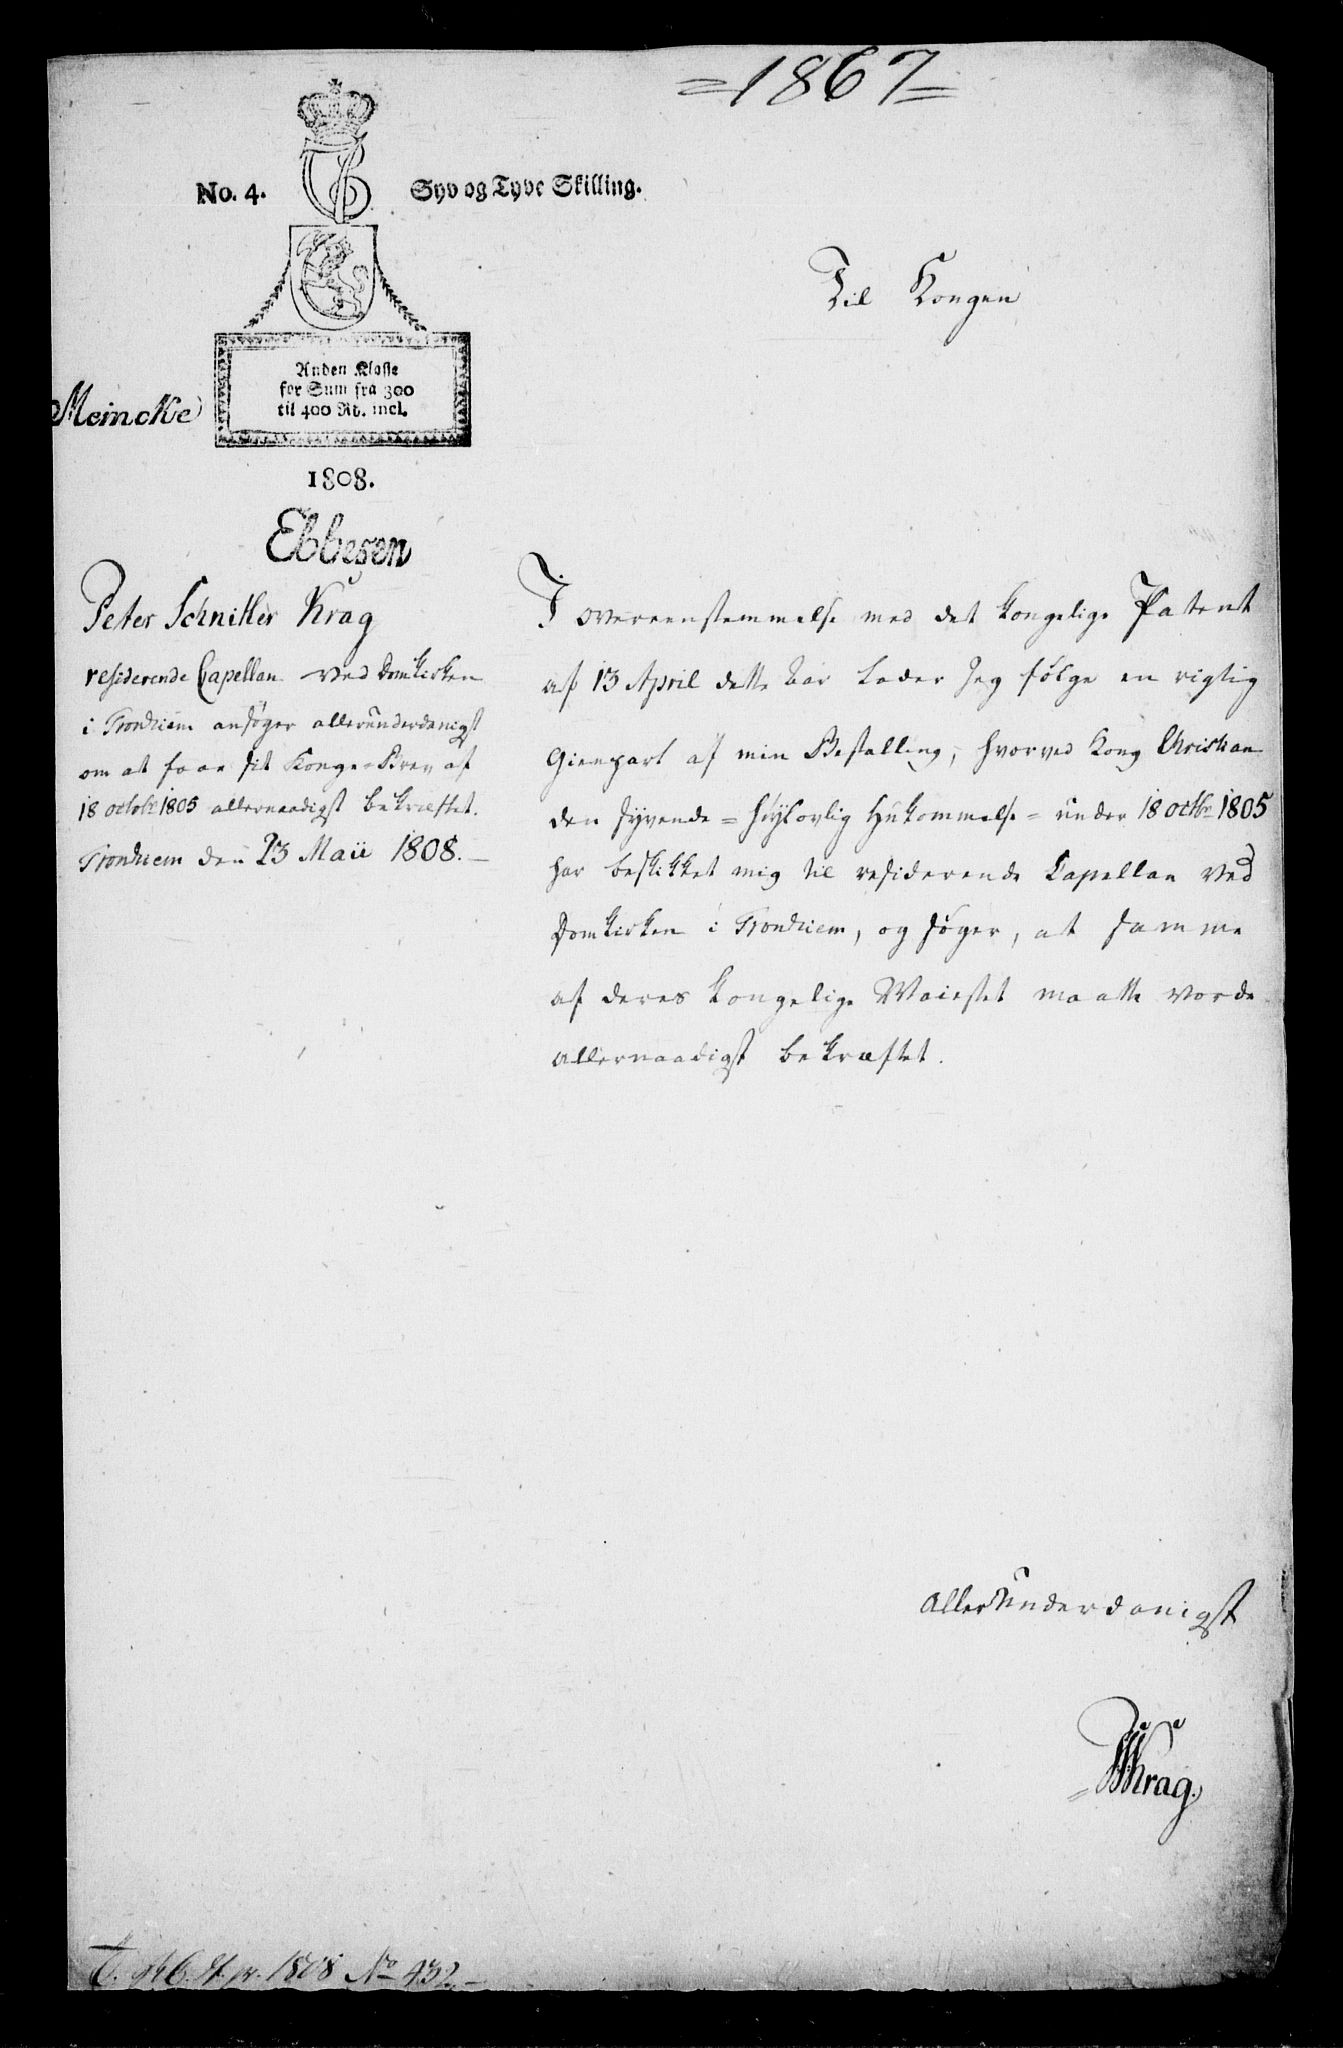 =1867=
No. 4. Syv og Tyve Skilling.
Til Kongen
Anden Klasse
for Sum fra 300
til 400 Rd. incl.
Meincke
1808.
Ebbesen
Peter Schnitler Krag
residerende Capellan ved Domkirken
i Trondhiem ansøger allerunderdanigst
om at faae sit Konge-Brev af
18 octobr 1805 allernaadigst bekræftet.
Trondhiem den 23 Maii 1808.
I overeensstemmelse med det kongelige Patent
af 13 April dette Aar lader jeg følge en rigtig
Gienpart af min Bestalling, hvorved Kong Christian
den syvende = høylovlig Hukommelse = under 18 octbr 1805
har beskikket mig til residerende Capellan ved
Domkirken i Trondhiem, og søger, at samme
af deres kongelige Maiestet maatte vorde
allernaadigst bekræftet.
Allerunderdanigst
Krag.
1808 No 432